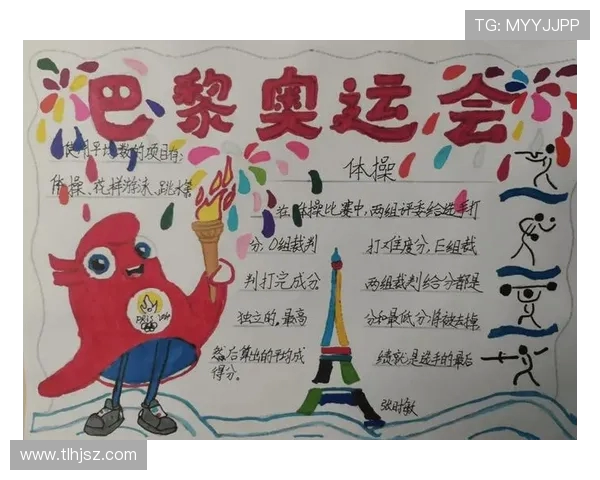 TG: MYYJJPP
巴黎奥运会
使用平均数的项目有:
体操
体操、花样游泳、跳水等
在体操比赛中,两组评委给选手打
分,D组裁判 打难度分,E组裁
判打完成分 两组裁判给分都是
独立的,最高 分和最低分将被去掉
然后算出的平均成 绩就是选手的最后
得分。
张时敏
www.tlhjsz.com